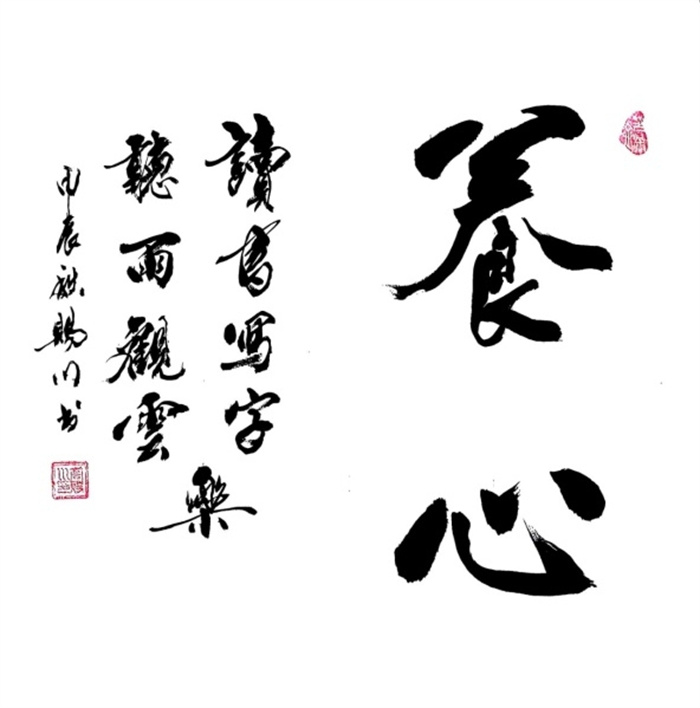 養心
讀書寫字
聽雨觀雲
樂
甲辰秋賜川书